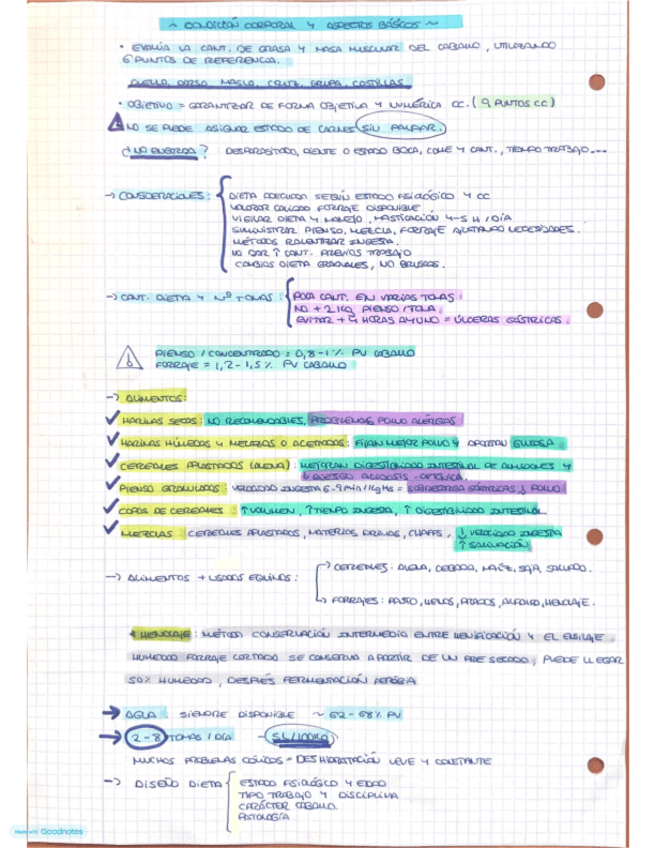 ~ CONDICIÓN CORPORAL Y ASPECTOS BÁSICOS ~
• EVALÚA LA CANT. DE GRASA Y MASA MUSCULAR DEL CABALLO, UTILIZANDO
6 PUNTOS DE REFERENCIA.
CUELLO, DORSO, MASLO, CRUZ, GRUPA, COSTILLAS.
• OBJETIVO = GARANTIZAR DE FORMA OBJETIVA Y NUMÉRICA CC. (9 PUNTOS CC)
NO SE PUEDE ASIGNAR ESTADO DE CARNES SIN PALPAR.
¿NO ENGORDA? DESPARASITADO, DIENTE O ESTADO BOCA, COME Y CANT., TIEMPO TRABAJO...
→ CONSIDERACIONES:
DIETA ADECUADA SEGÚN ESTADO FISIOLÓGICO Y CC
VALORAR CALIDAD FORRAJE DISPONIBLE
VIGILAR DIETA Y MANEJO, MASTICACIÓN 4-5 H/DÍA
SUMINISTRAR PIENSO, MEZCLA, FORRAJE AJUSTANDO NECESIDADES.
MÉTODOS RALENTIZAR INGESTA.
NO DAR ↑ CANT. PREVIOS TRABAJO
CAMBIOS DIETA GRADUALES, NO BRUSCOS.
→ CANT. DIETA Y Nº TOMAS:
POCA CANT. EN VARIAS TOMAS
NO +2KG PIENSO/TOMA.
EVITAR + 4 HORAS AYUNO = ÚLCERAS GÁSTRICAS.
PIENSO/CONCENTRADO = 0,8-1% PV CABALLO
FORRAJE = 1,2-1,5% PV CABALLO
→ ALIMENTOS:
HARINAS SECAS: NO RECOMENDABLES, PROBLEMAS POLVO ALERGIAS
HARINAS HÚMEDAS Y MELAZAS O ACEITADAS: FIJAN MEJOR POLVO Y APORTAN GLUCOSA.
CEREALES APLASTADOS (AVENA): MEJORAN DIGESTIBILIDAD INTESTINAL DE ALMIDONES Y
↓ RIESGO ACIDOSIS
PIENSO GRANULADOS: VELOCIDAD INGESTA 6-9 min/Kg MS = SOBRECARGA GÁSTRICAS ↓ POLVO
COPOS DE CEREALES: ↑ VOLUMEN, ↑ TIEMPO INGESTA, ↑ DIGESTIBILIDAD INTESTINAL
MEZCLAS: CEREALES APLASTADOS, MATERIAS PRIMAS, CHAFFS, ↓ VELOCIDAD INGESTA
↑ SALIVACIÓN
→ ALIMENTOS + USADOS EQUINOS:
→ CEREALES: AVENA, CEBADA, MAÍZ, SOJA, SALVADO.
→ FORRAJES: PASTO, HENOS, ALFALFA, HENOLAJE.
* HENOLAJE: MÉTODO CONSERVACIÓN INTERMEDIA ENTRE HENIFICACIÓN Y EL ENSILAJE.
HUMEDAD FORRAJE CORTADO SE CONSERVA A PARTIR DE UN PRE SECADO, PUEDE LLEGAR
50% HUMEDAD, DESPUÉS FERMENTACIÓN
→ AGUA: SIEMPRE DISPONIBLE ~ 62-68% PV
→ 2-8 TOMAS/DÍA - 5L/100KG
MUCHOS PROBLEMAS CÓLICOS = DESHIDRATACIÓN LEVE Y CONSTANTE
→ DISEÑO DIETA
ESTADO FISIOLÓGICO Y EDAD
TIPO TRABAJO Y DISCIPLINA
CARÁCTER CABALLO.
PATOLOGÍA
Made with Goodnotes